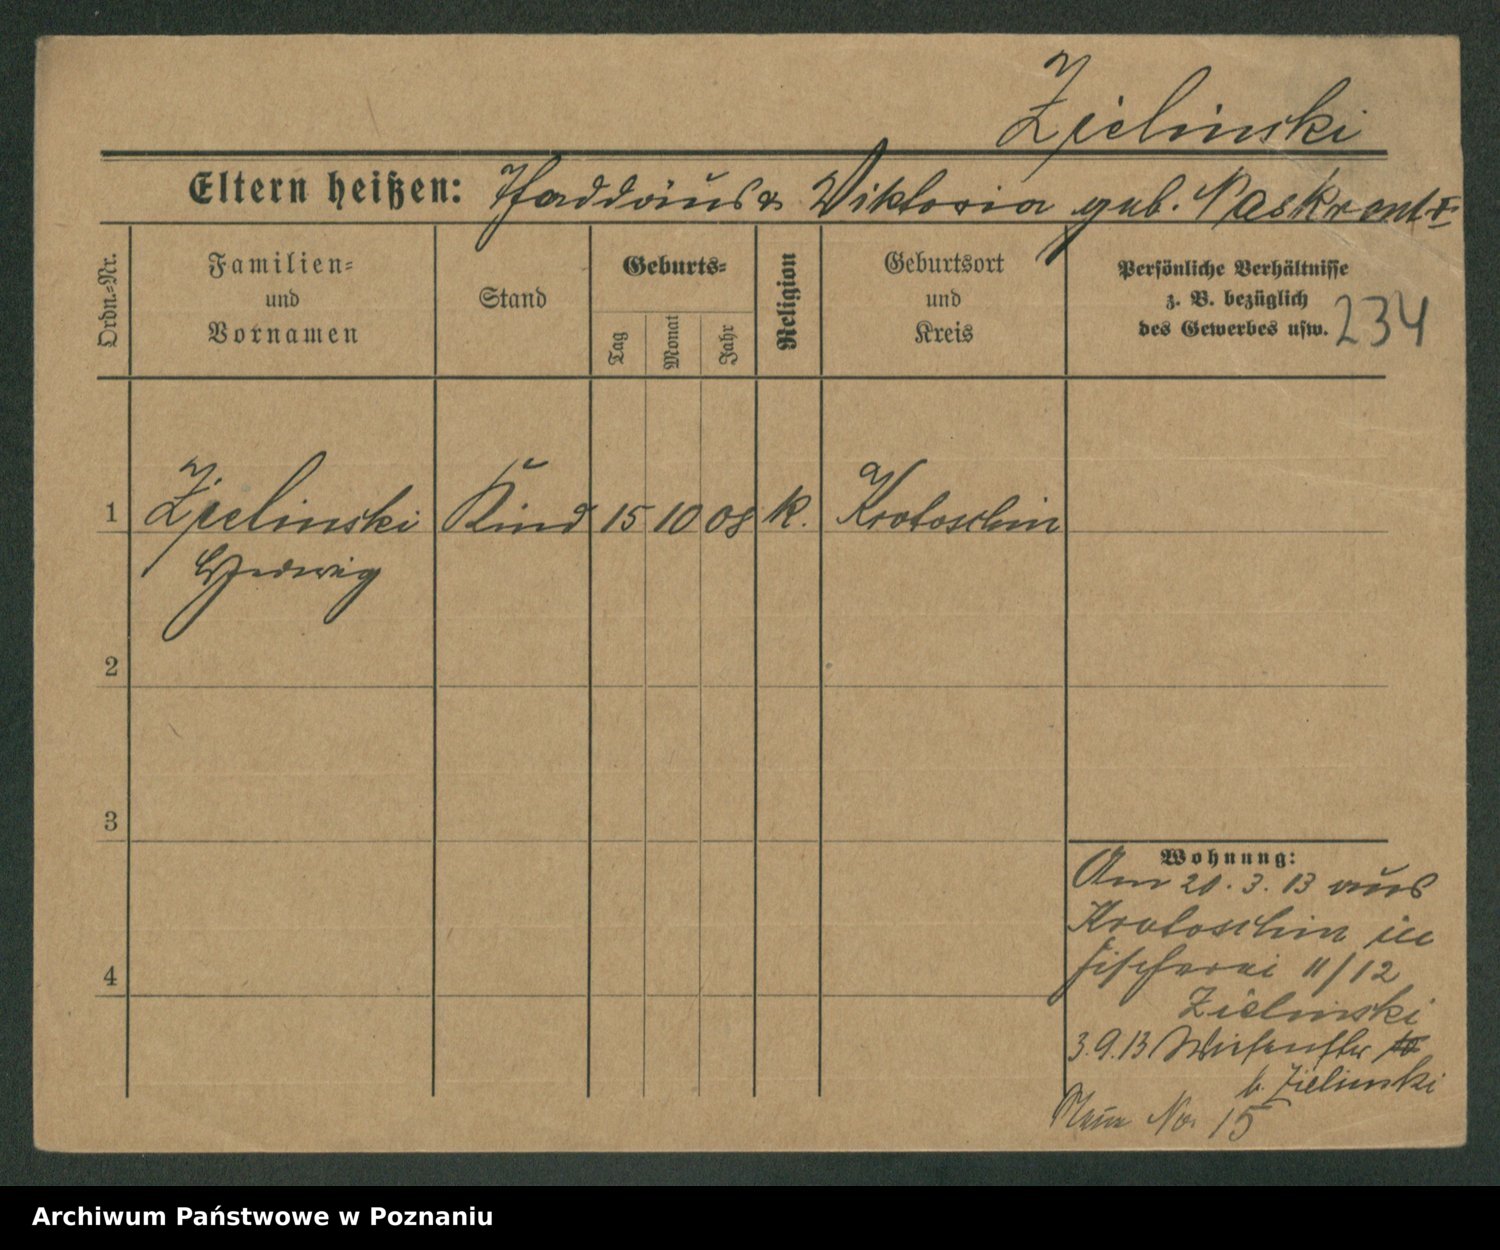 Zielinski
Eltern heißen: Thaddäus & Viktoria geb. Paskrent
Ordn.-Nr.
Familien-
und
Vornamen
Stand
Geburts-
Tag
Monat
Jahr
Religion
Geburtsort
und
Kreis
Persönliche Verhältnisse
z. B. bezüglich
des Gewerbes usw.
234
1 Zielinski Kind 15 10 08 k. Krotoschin
Hedwig
2
3
4
Wohnung:
Am 20.3.13 aus
Krotoschin in
Fischerei 11/12
Zielinski
3.9.13 Wiesenstr
b. Zielinski
Neue No. 15
Archiwum Państwowe w Poznaniu